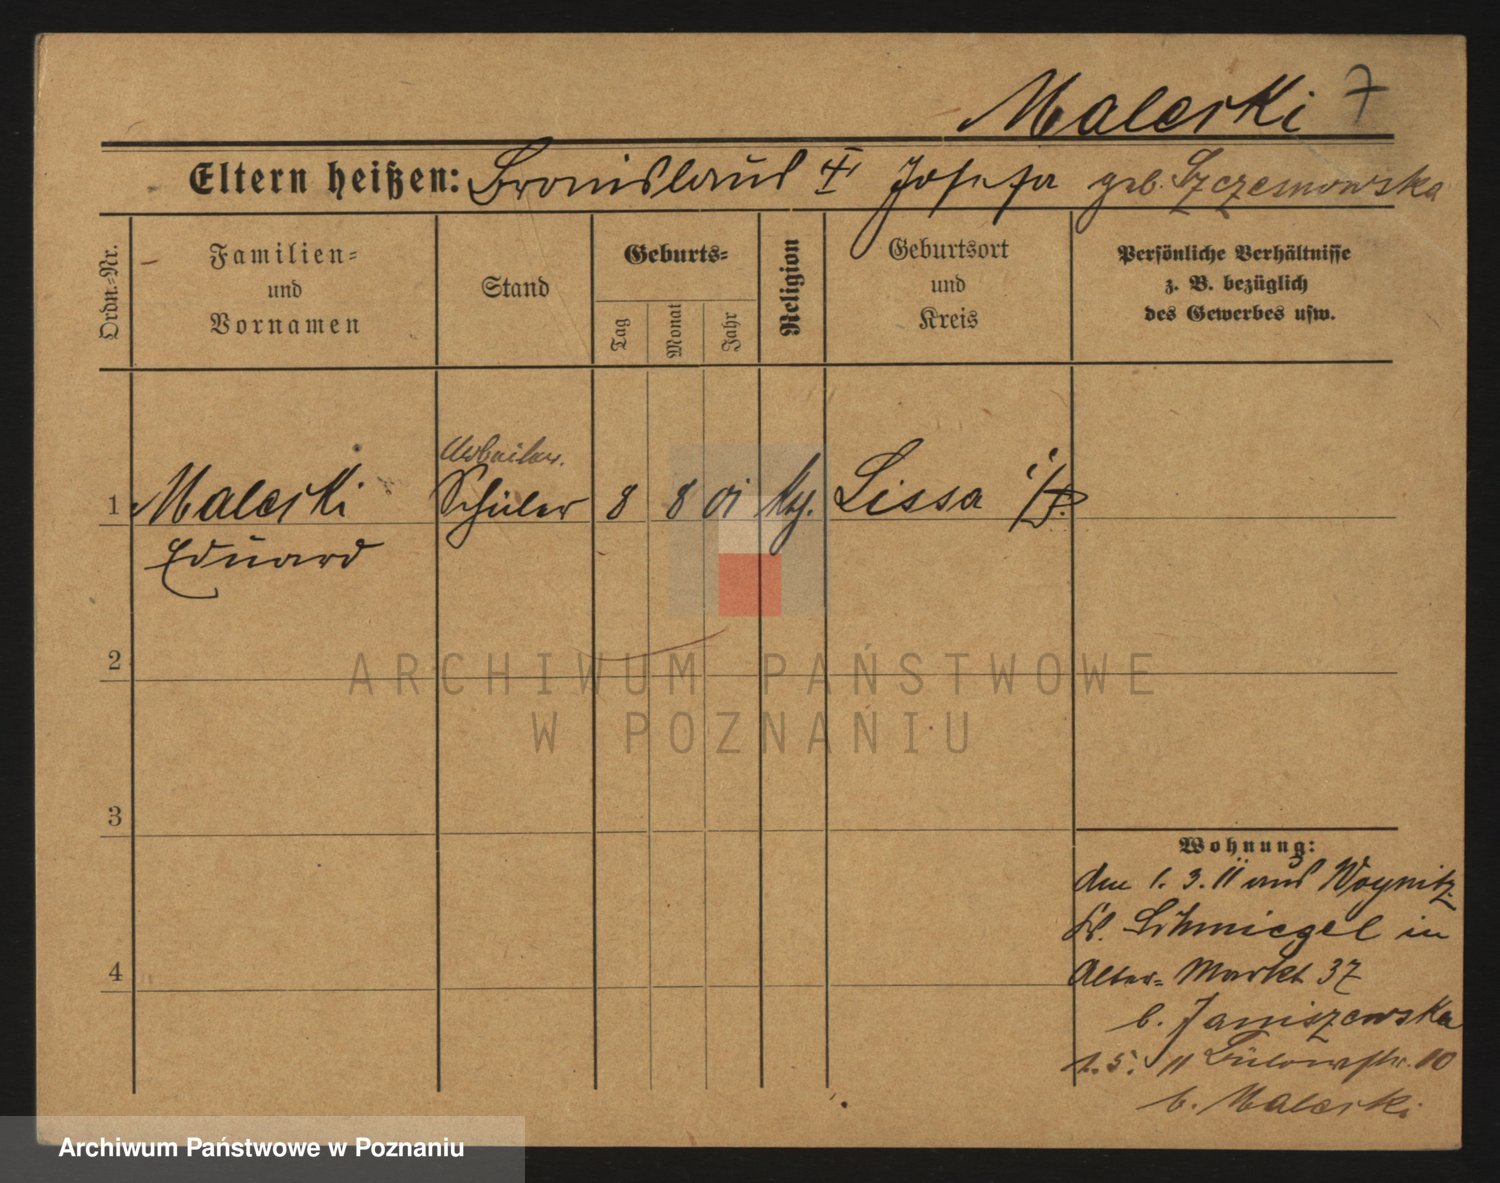 Maleski 7
Eltern heißen: Bronislaus † Josefa geb. Szczesnowska
Ordn.-Nr.
Familien-
und
Vornamen
Stand
Geburts-
Tag
Monat
Jahr
Religion
Geburtsort
und
Kreis
Persönliche Verhältnisse
z. B. bezüglich
des Gewerbes usw.
Arbeiter.
1 Maleski Schüler 8 8 01 kth. Lissa i/P.
Eduard
2
3
4
Wohnung:
den 1. 3. 11 aus Woynitz
Kr. Schmiegel in
Alter- Markt 37
b. Janiszewska
1. 5. 11 Bülowstr. 10
b. Maleski
ARCHIWUM PAŃSTWOWE
W POZNANIU
Archiwum Państwowe w Poznaniu